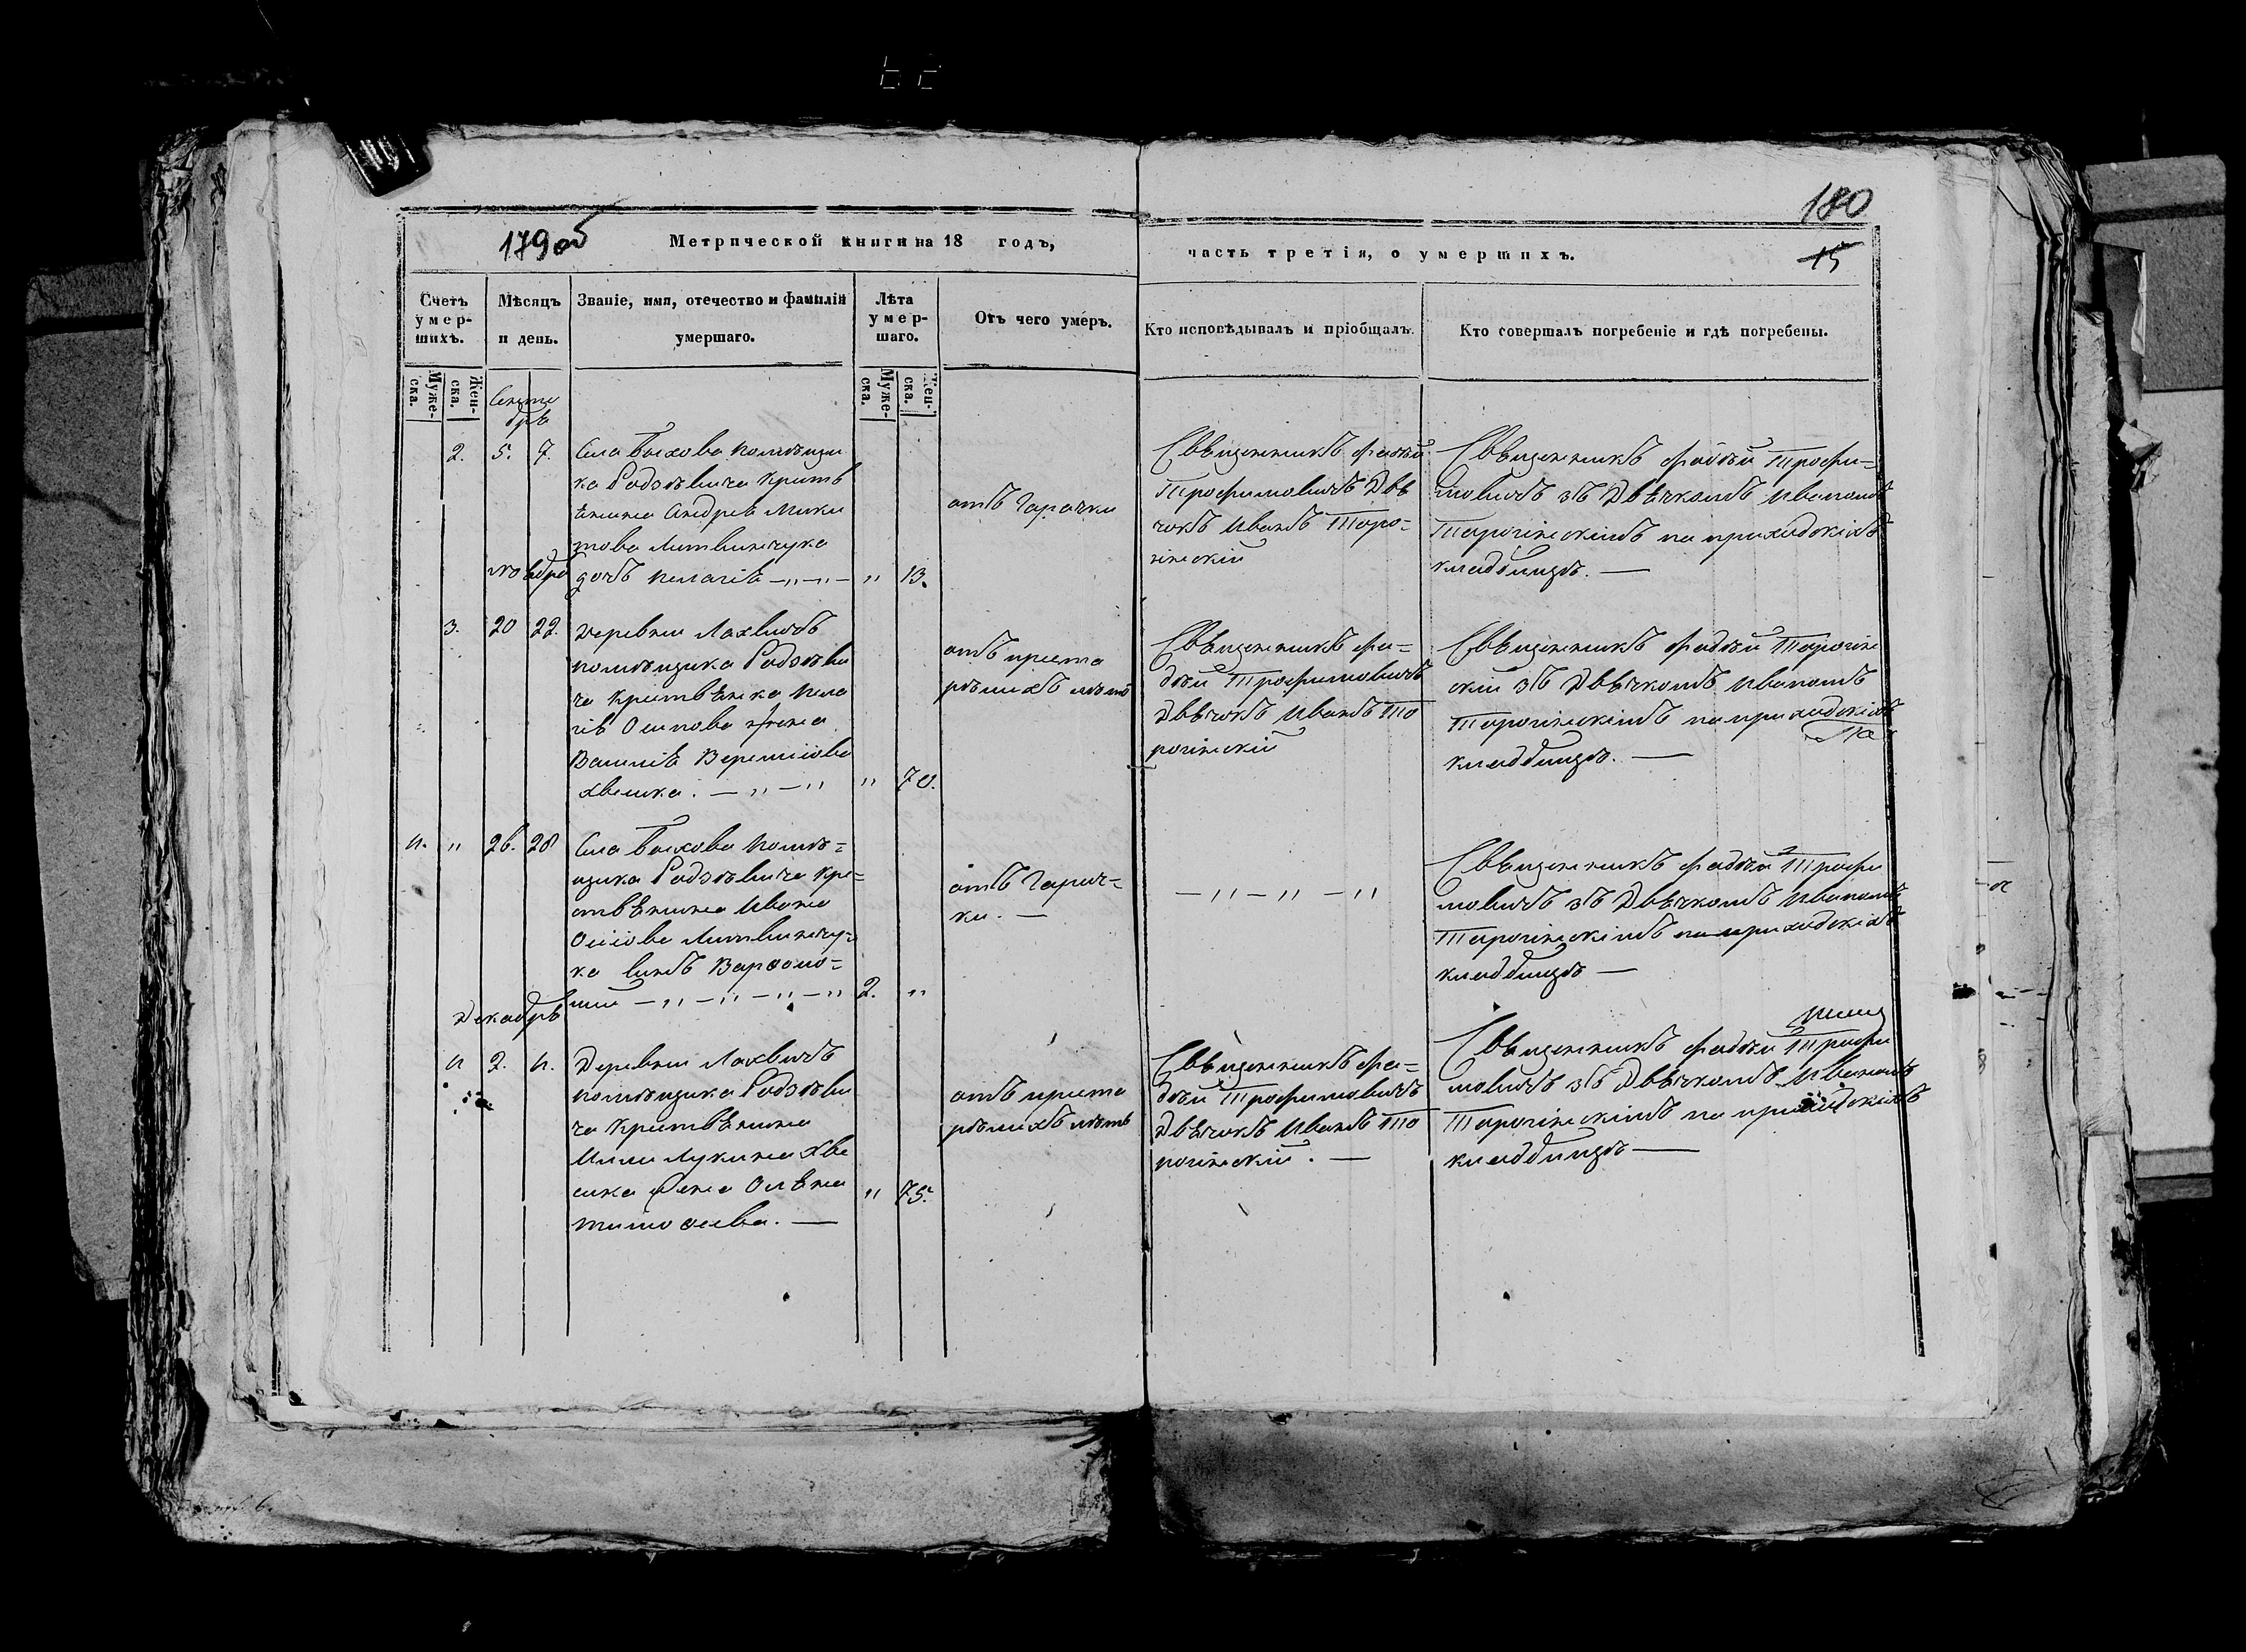 180
179об
Метрической книги на 18 годъ,
часть третія, о умершихъ.
15
Счетъ умер-шихъ.
Мѣсяцъ и день.
Званіе, имя, отечество и фамилія умершаго.
Лѣта умер-шаго.
Отъ чего умеръ.
Кто исповѣдывалъ и пріобщалъ.
Кто совершалъ погребеніе и гдѣ погребены.
Муже-ска.
Жен-ска.
Муже-ска.
Жен-ска.
Сентябрь
2. 5. 7.
Села Быхова помѣщи
ка Радзѣвича крить
янина Андрея Мики
това Литвинчука
дочь Пелагія — „ — „ — „ 13.
отъ Гарачки
Священникъ Фадѣй
Трофимовичъ Дья
чокъ Иванъ Таро=
гинскій
Священникъ Фадѣй Трофи=
мовичъ зъ Дьячкомъ Иваномъ
Тарогинскимъ на приходскомъ
кладбищѣ. —
Ноября
3. 20 22.
Деревни Лахвичъ
помѣщика Радзѣви
ча критьянка Пела
гія Осипова жена
Василія
„ 70.
отъ преста
рѣлыхъ лѣтъ
Священникъ Фа=
дѣй Трофимовичъ
Дьячокъ Иванъ Та
рогинскій
Священникъ Фадѣй Тарогин
скій зъ Дьячкомъ Иваномъ
Тарогинскимъ на приходскомъ
кладбищѣ. —
4. „ 26. 28
Села Быхова помѣ=
щика Радзѣвича кре=
стьянина Ивана
Литвинчу=
ка сынъ Варѳоло=
мей — „ — „ — „ — „ 2. „
отъ Гарач=
ки. —
— „ — „ — „
Священникъ Фадѣй Трофи
мовичъ зъ Дьячкомъ Иваномъ
Тарогинскимъ на приходскомъ
кладбищѣ —
Декабрь
4 2. 4.
Деревни Лахвичъ
помѣщика Радзѣви
ча критьянина
Лукина Хве
сика жена Оляна
Тимоѳеева. —
„ 75.
отъ преста
рѣлыхъ лѣтъ
Священникъ Фа=
дѣй Трофимовичъ
Дьячокъ Иванъ Та
рогинскій. —
Священникъ Фадѣй Трофи
мовичъ зъ Дьячкомъ Иваномъ
Тарогинскимъ на приходскомъ
кладбищѣ —